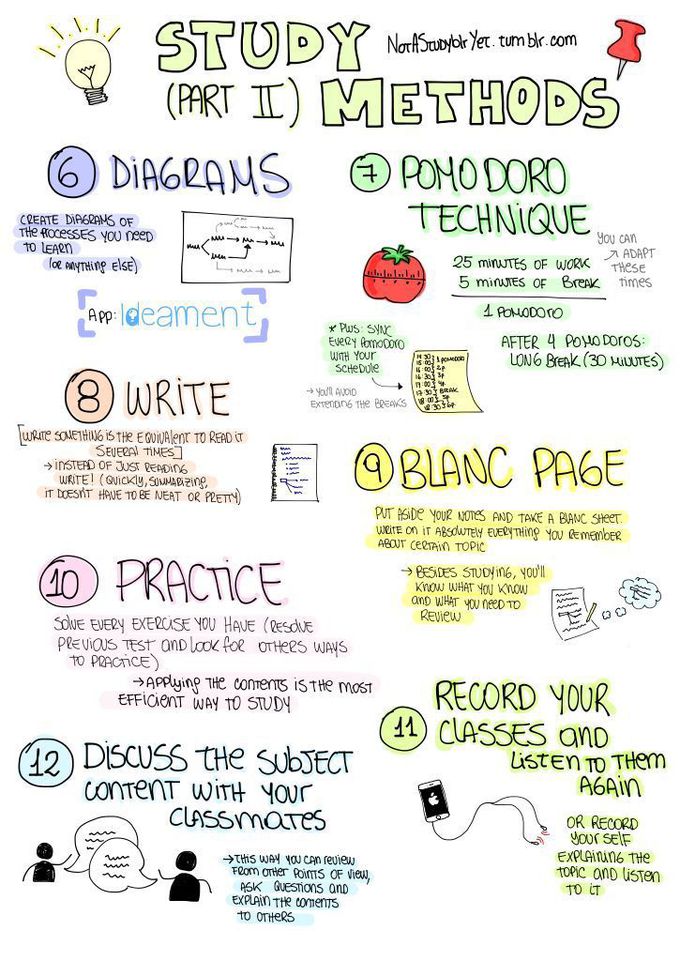 STUDY
NotAStudyblrYet.tumblr.com
(PART II) METHODS
6 DIAGRAMS
CREATE DIAGRAMS OF
THE PROCESSES YOU NEED
TO LEARN
(OR ANYTHING ELSE)
App: Ideament
7 POMODORO
TECHNIQUE
25 MINUTES OF WORK
5 MINUTES OF BREAK
1 POMODORO
YOU CAN
→ ADAPT
THESE
TIMES
AFTER 4 POMODOROS:
LONG BREAK (30 MINUTES)
* PLUS: SYNC
EVERY POMODORO
WITH YOUR
SCHEDULE
→ YOU'LL AVOID
EXTENDING THE BREAKS
1 POMODORO
BREAK
8 WRITE
[WRITE SOMETHING IS THE EQUIVALENT TO READ IT
SEVERAL TIMES]
→ INSTEAD OF JUST READING
WRITE! (QUICKLY, SUMMARIZING,
IT DOESN'T HAVE TO BE NEAT OR PRETTY)
9 BLANC PAGE
PUT ASIDE YOUR NOTES AND TAKE A BLANC SHEET.
WRITE ON IT ABSOLUTELY EVERYTHING YOU REMEMBER
ABOUT CERTAIN TOPIC
→ BESIDES STUDYING, YOU'LL
KNOW WHAT YOU KNOW
AND WHAT YOU NEED TO
REVIEW
10 PRACTICE
SOLVE EVERY EXERCISE YOU HAVE (RESOLVE
PREVIOUS TEST AND LOOK FOR OTHERS WAYS
TO PRACTICE)
→ APPLYING THE CONTENTS IS THE MOST
EFFICIENT WAY TO STUDY
11 RECORD YOUR
CLASSES AND
LISTEN TO THEM
AGAIN
OR RECORD
YOURSELF
EXPLAINING THE
TOPIC AND LISTEN
TO IT
12 DISCUSS THE SUBJECT
CONTENT WITH YOUR
CLASSMATES
→ THIS WAY YOU CAN REVIEW
FROM OTHER POINTS OF VIEW,
ASK QUESTIONS AND
EXPLAIN THE CONTENTS
TO OTHERS